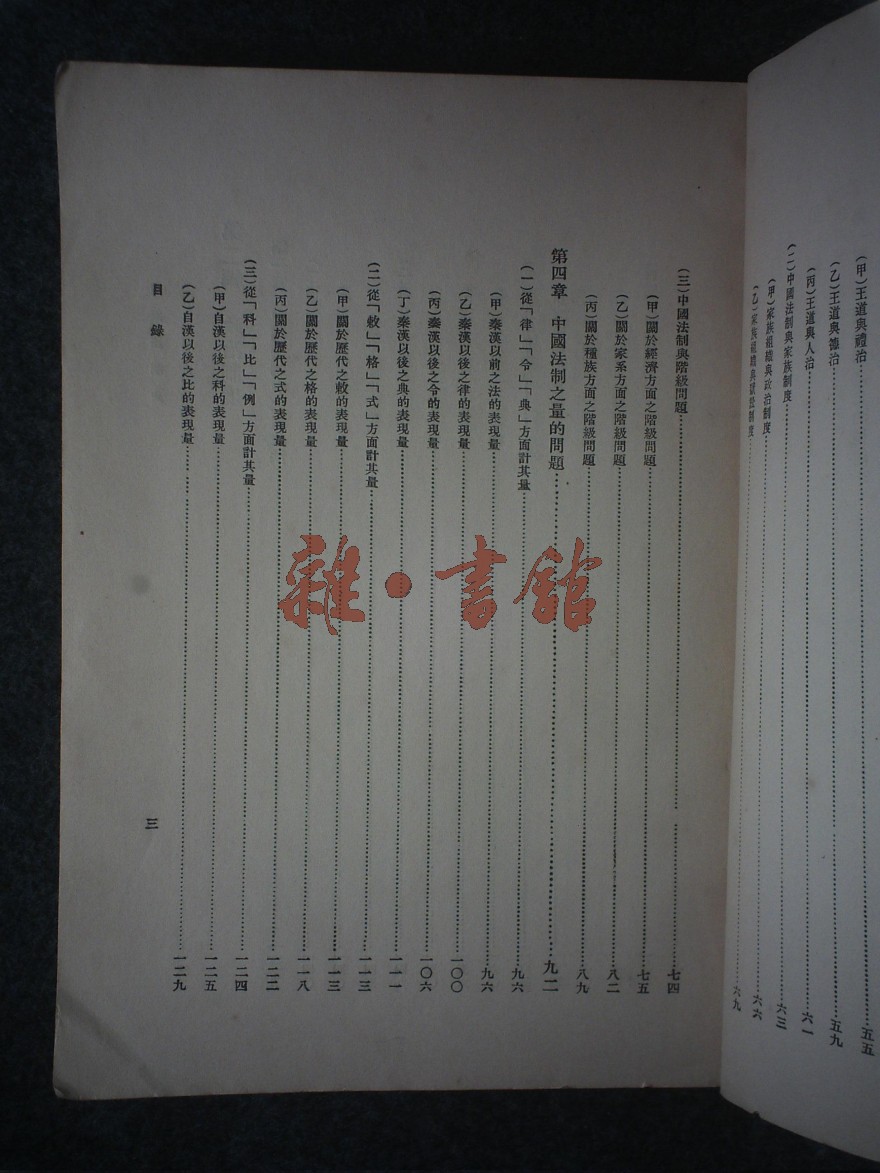 (甲)王道與禮治……五五
(乙)王道與德治……五九
(丙)王道與人治……六一
(二)中國法制與家族制度……六三
(甲)家族組織與政治制度……六六
(乙)家族組織與獄訟制度……六九
(三)中國法制與階級問題……七四
(甲)關於經濟方面之階級問題……七五
(乙)關於家系方面之階級問題……八二
(丙)關於種族方面之階級問題……八九
第四章 中國法制之量的問題……九二
(一)從「律」「令」「典」方面計其量……九六
(甲)秦漢以前之法的表現量……九六
(乙)秦漢以後之律的表現量……一〇〇
(丙)秦漢以後之令的表現量……一〇六
(丁)秦漢以後之典的表現量……一一一
(二)從「敕」「格」「式」方面計其量……一一三
(甲)關於歷代之敕的表現量……一一三
(乙)關於歷代之格的表現量……一一八
(丙)關於歷代之式的表現量……一二二
(三)從「科」「比」「例」方面計其量……一二四
(甲)自漢以後之科的表現量……一二五
(乙)自漢以後之比的表現量……一二九
目錄
三
雜·書館